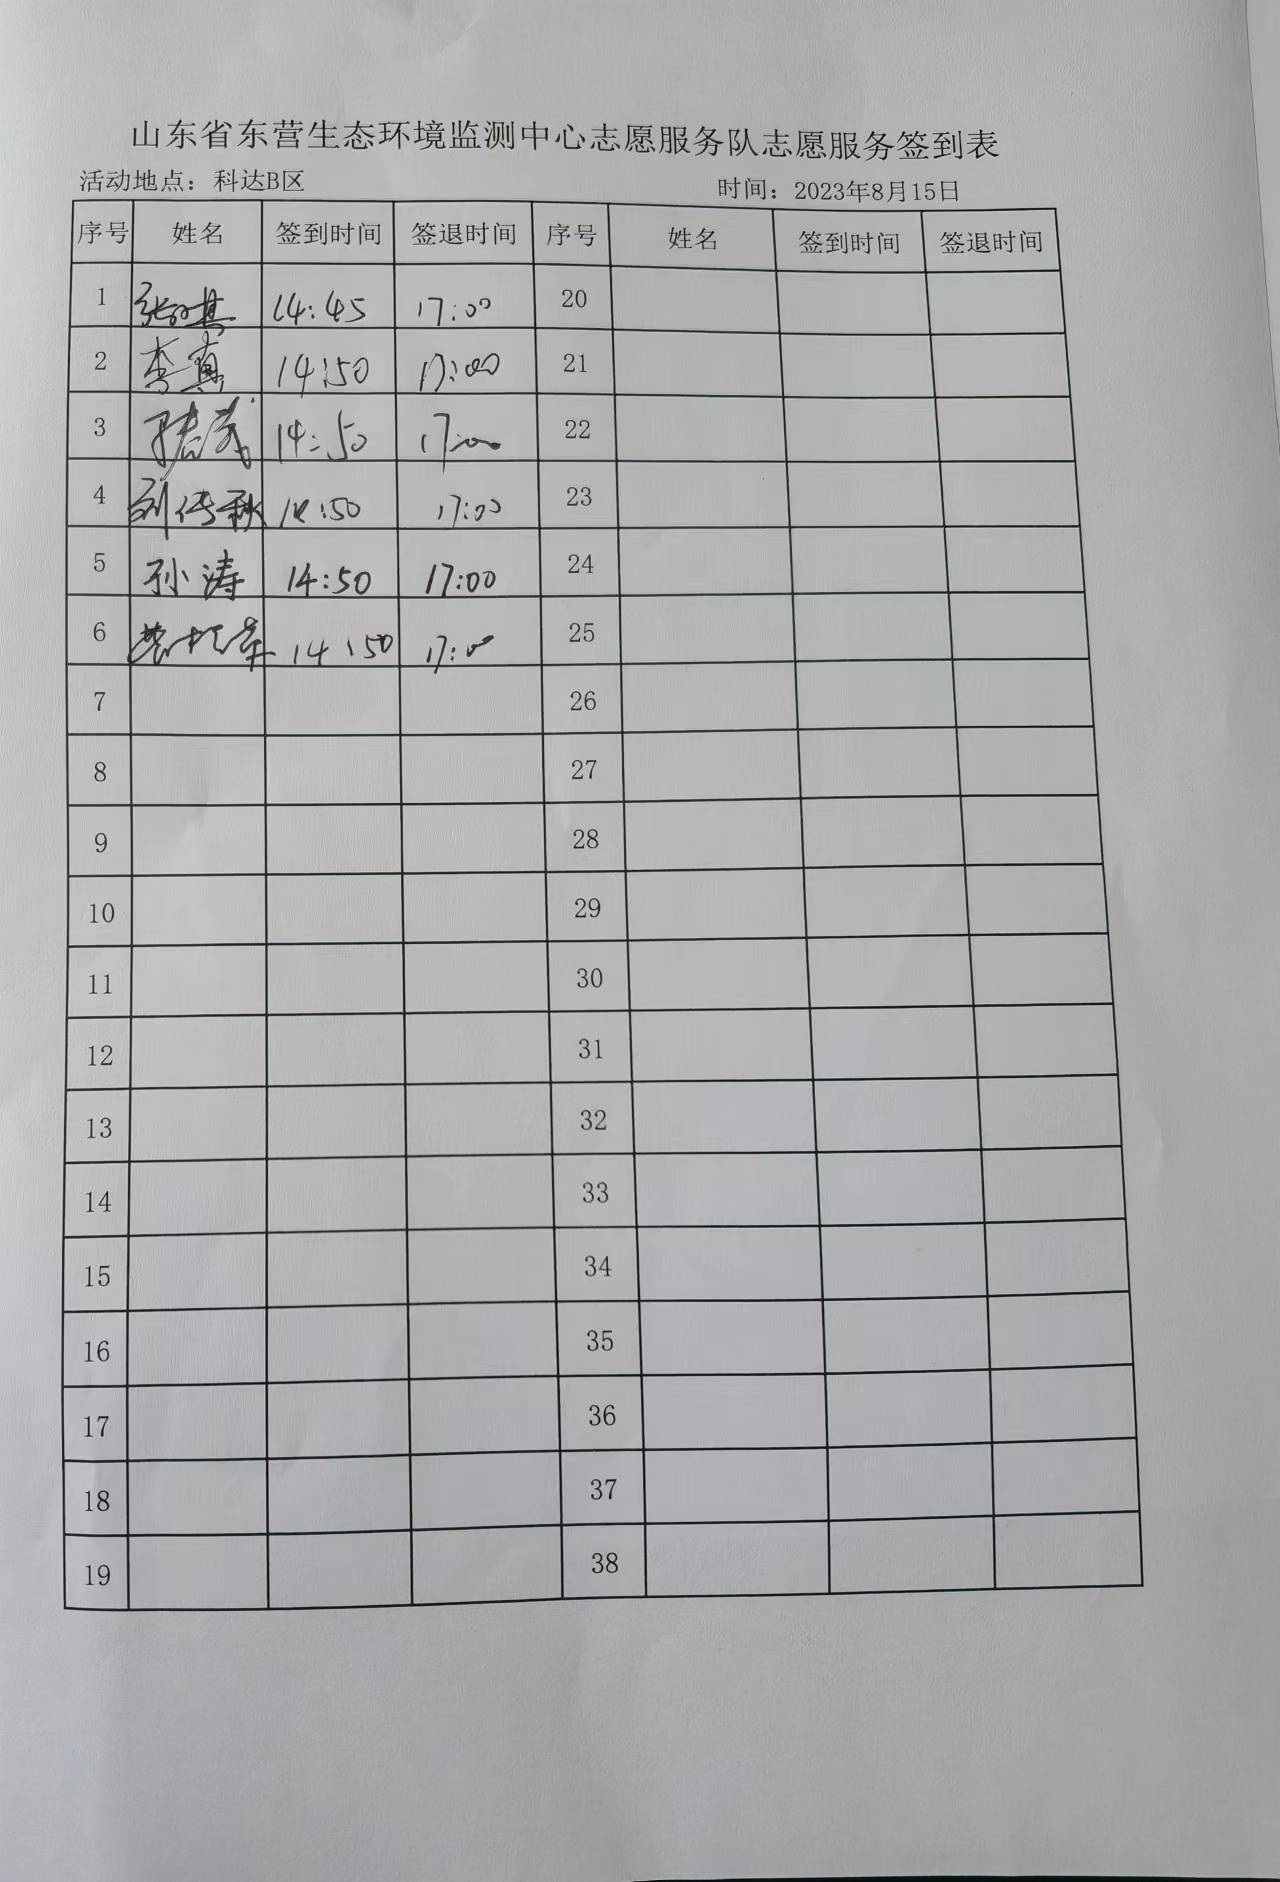 山东省东营生态环境监测中心志愿服务队志愿服务签到表
活动地点：科达B区 时间：2023年8月15日
序号 姓名 签到时间 签退时间 序号 姓名 签到时间 签退时间
1 14:45 17:00 20
2 李真 14:50 17:00 21
3 14:50 17:00 22
4 刘传秋 14:50 17:00 23
5 孙涛 14:50 17:00 24
6 14:50 17:00 25
7 26
8 27
9 28
10 29
11 30
12 31
13 32
14 33
15 34
16 35
17 36
18 37
19 38